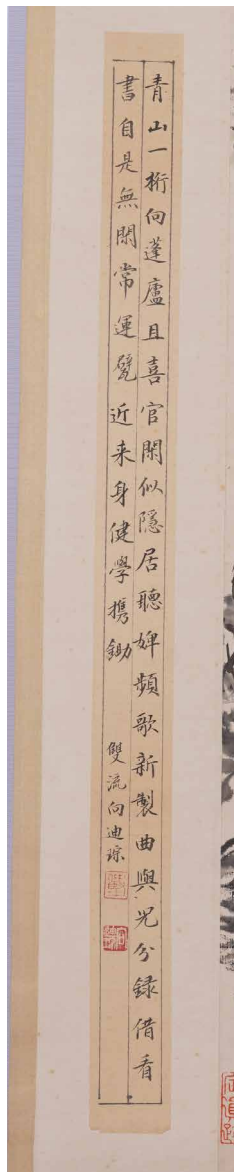 青山一桁向蓬廬且喜官閑似隱居聽婢頻歌新製曲與兒分録借看
書自是無閑常運甓近来身健學攜鋤
雙流向迪琮